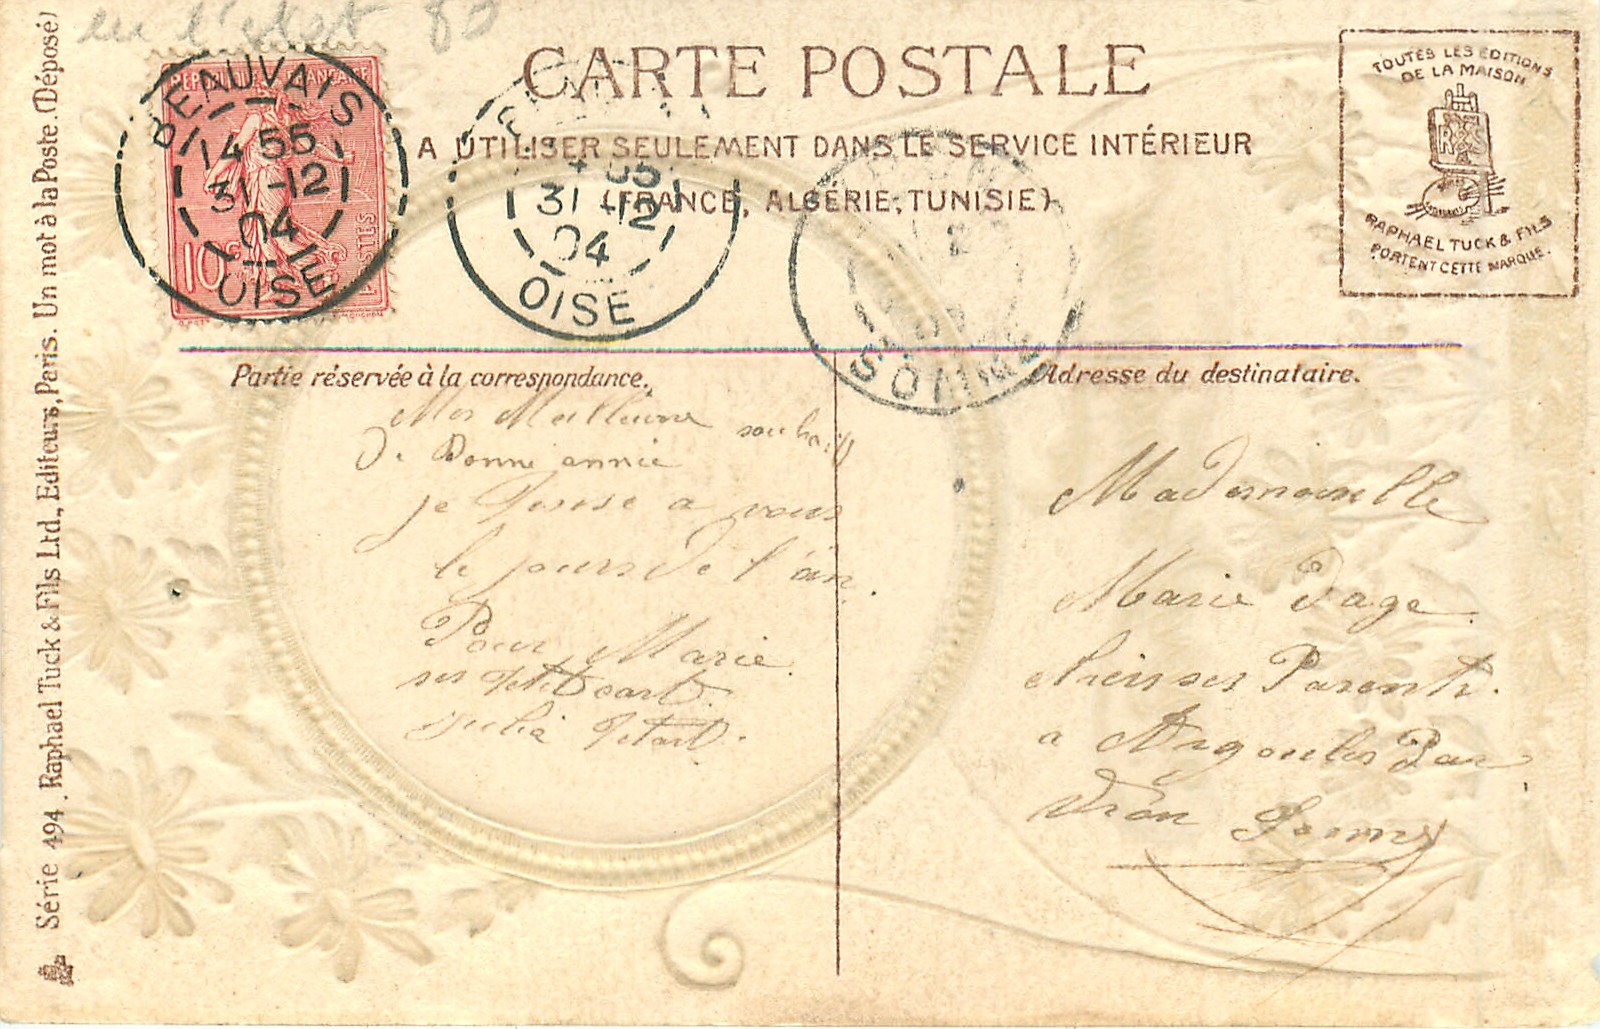 en l'état 80
CARTE POSTALE
A UTILISER SEULEMENT DANS LE SERVICE INTÉRIEUR
(FRANCE, ALGÉRIE, TUNISIE)
RÉPUBLIQUE FRANÇAISE
POSTES
10c
BEAUVAIS
14 55
31 -12
04
OISE
31 -12
04
OISE
SOMME
TOUTES LES ÉDITIONS
DE LA MAISON
RAPHAEL TUCK & FILS
PORTENT CETTE MARQUE.
Partie réservée à la correspondance.
Adresse du destinataire.
Mes Meilleure souhaits
De Bonne année
je Pense a vous
le jours de l'an.
Pour Marie
ses
Julia Petard.
Mademoiselle
Marie Dage
cheix ses Parents.
a Argoules Par
Vron Somme
Série 494. Raphael Tuck & Fils Ltd., Editeurs, Paris. Un mot à la Poste. (Déposé)